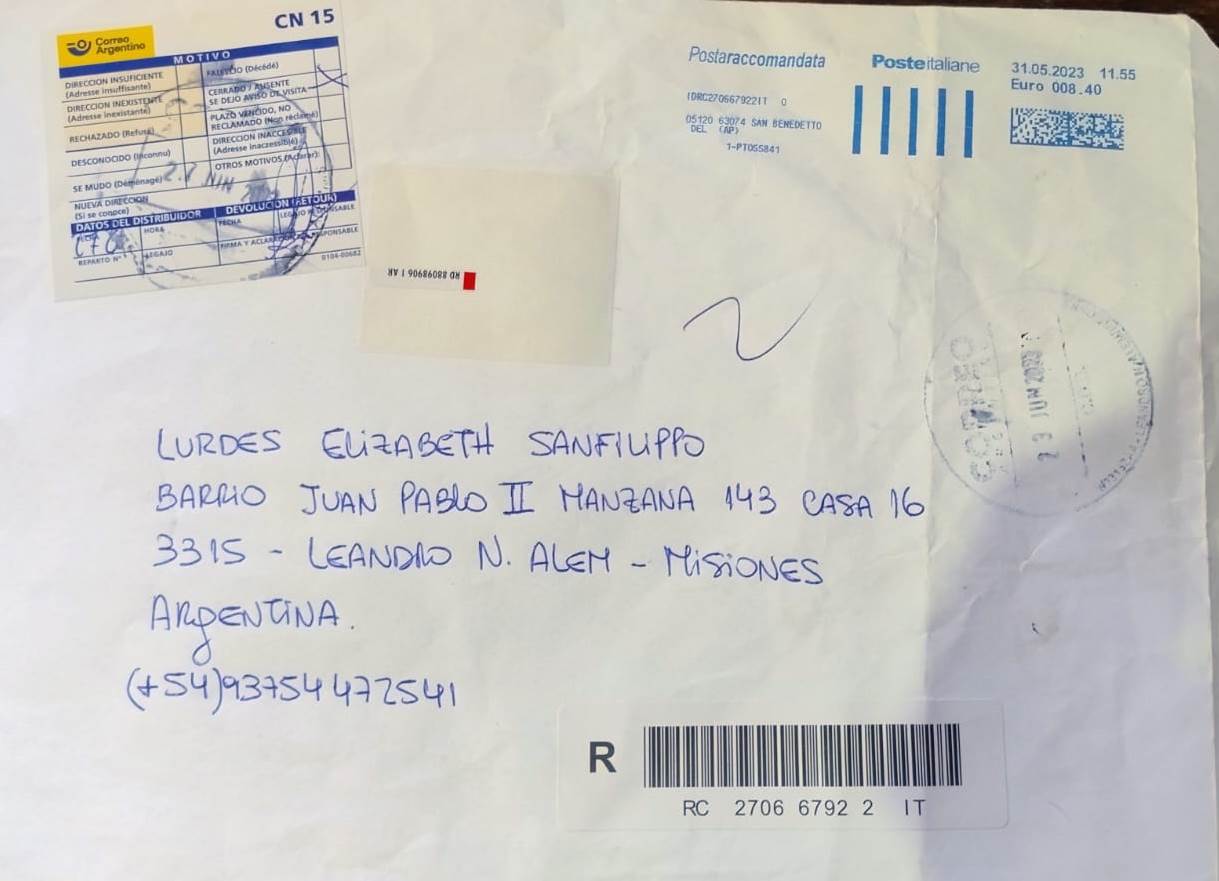 CN 15
Correo
Argentino
MOTIVO
DIRECCION INSUFICIENTE
(Adresse insuffisante)
DIRECCION INEXISTENTE
(Adresse inexistante)
RECHAZADO (Refusé)
DESCONOCIDO (Inconnu)
SE MUDO (Déménagé)
NUEVA DIRECCION
(Si se conoce)
FALLECIO (Décédé)
CERRADO / AUSENTE
SE DEJO AVISO DE VISITA
PLAZO VENCIDO, NO
RECLAMADO (Non réclamé)
DIRECCION INACCESIBLE
(Adresse inaccessible)
OTROS MOTIVOS (Aclarar):
DATOS DEL DISTRIBUIDOR
DEVOLUCION (RETOUR)
FECHA
HORA
FECHA
REPARTO N°
LEGAJO
0104-00682
RD 80989906 1 AR
Postaraccomandata
Posteitaliane
31.05.2023 11.55
Euro 008.40
IDRC27066792211 0
05120 63074 SAN BENEDETTO
DEL (AP)
1-PT055841
CORREO
23 JUN 2023
LURDES ELIZABETH SANFILIPPO
BARRIO JUAN PABLO II MANZANA 143 CASA 16
3315 - LEANDRO N. ALEM - MISIONES
ARGENTINA.
(+54)93754 472541
R
RC 2706 6792 2 IT